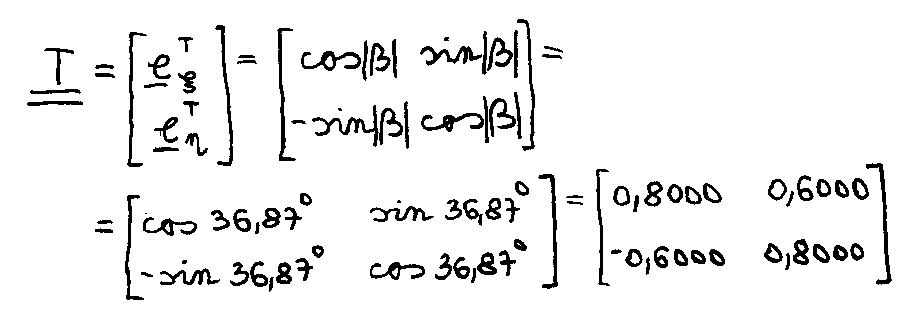 T = [e_ξ^T; e_η^T] = [cos|β| sin|β|; -sin|β| cos|β|] =
= [cos 36,87° sin 36,87°; -sin 36,87° cos 36,87°] = [0,8000 0,6000; -0,6000 0,8000]